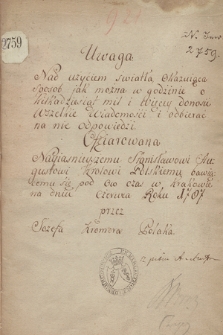 2759
N. Inw.
2759.
Uwaga
Nad użyciem swiatła okazuiąca
sposob jak można w godzinie o
kilkadziesiąt mil i więcey donosić
wszelkie wiadomości i odbierać
na nie odpowiedzi.
Ofiarowana
Nayiasnieyszemu Stanisławowi Au-
gustowi Krolowi Polskiemu bawią-
cemu się pod ow czas w Krakowie
na dniu Czerwca Roku 1787
przez
Jozefa Polaka